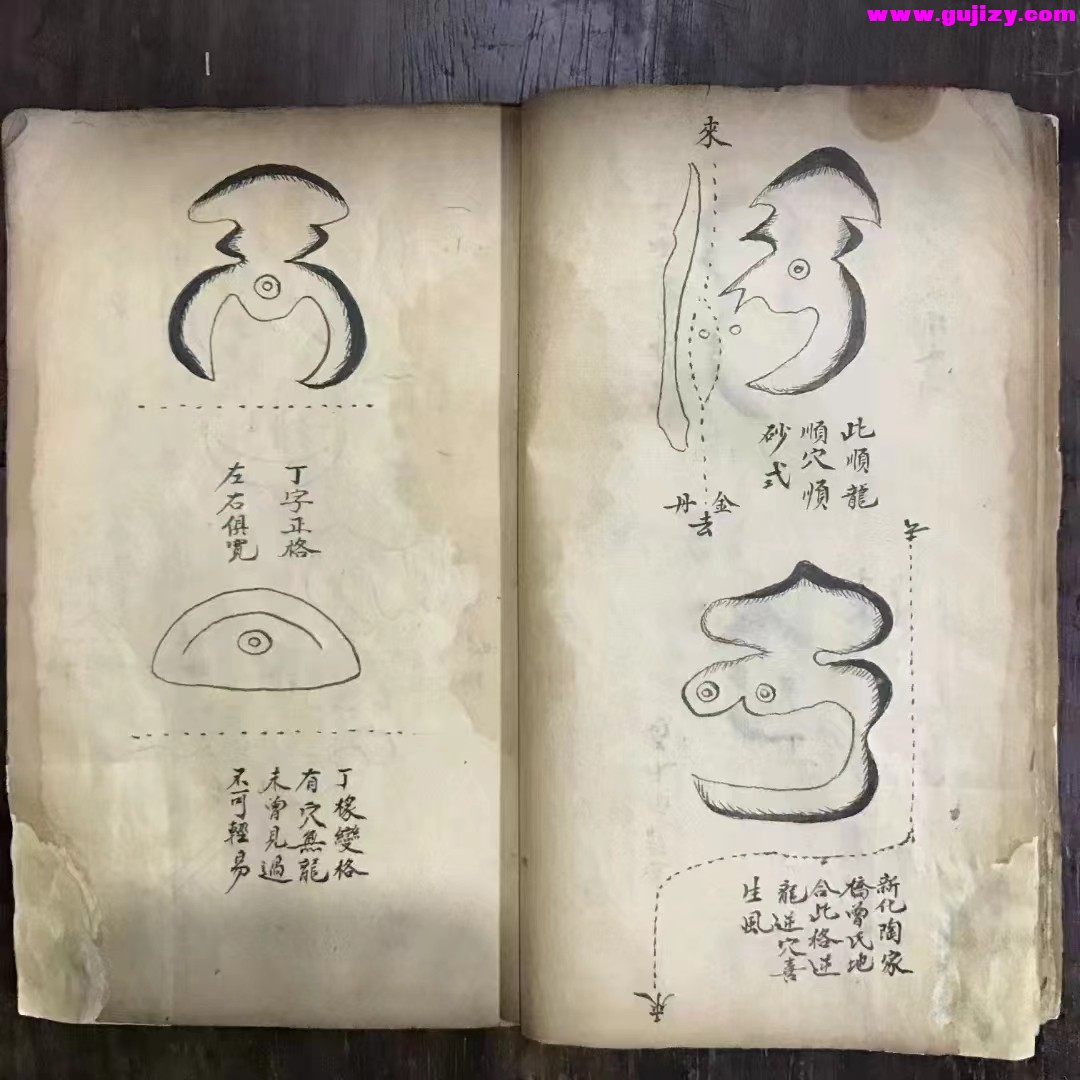 www.gujizy.com
來
此順龍
順穴順
砂式
金
丹
去
去
新化陶家
橋曾氏地
合此格逆
龍逆穴喜
生風
來
丁字正格
左右俱寬
丁格變格
有穴無龍
未曾見過
不可輕易